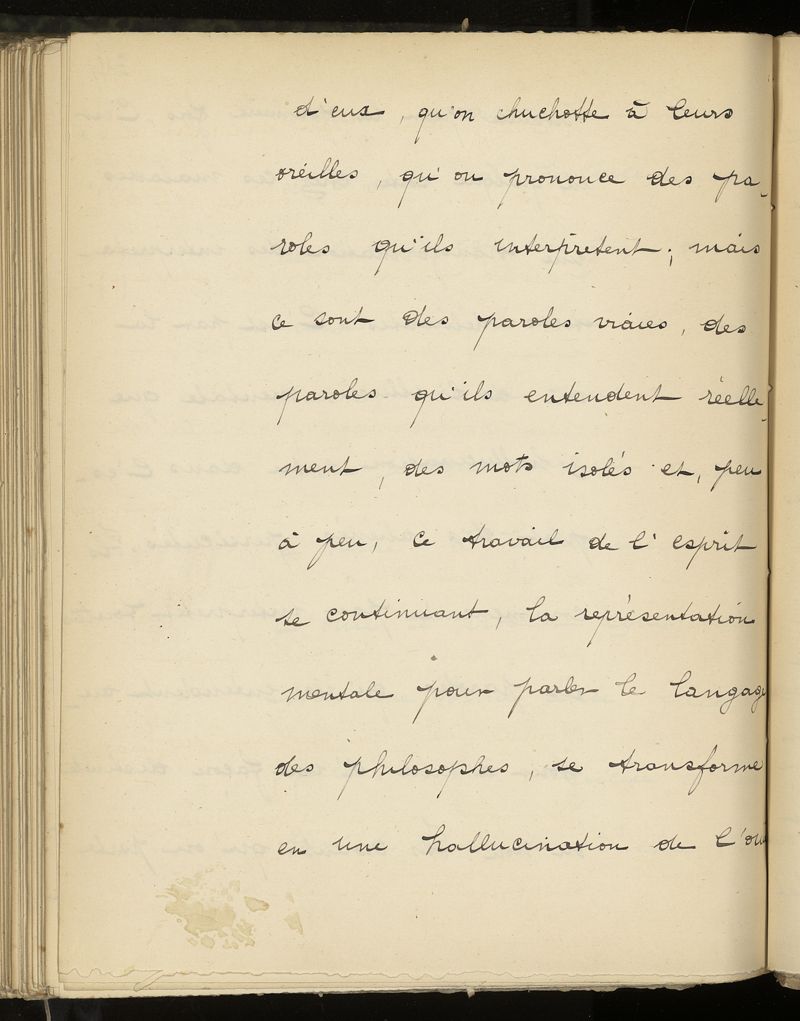 d'eux, qu'on chuchotte à leurs
oreilles, qu'on prononce des pa-
roles qu'ils interprètent; mais
ce sont des paroles vraies, des
paroles qu'ils entendent réelle-
ment, des mots isolés et, peu
à peu, ce travail de l'esprit
se continuant, la représentation
mentale pour parler le langage
des philosophes, se transforme
en une hallucination de l'ouï